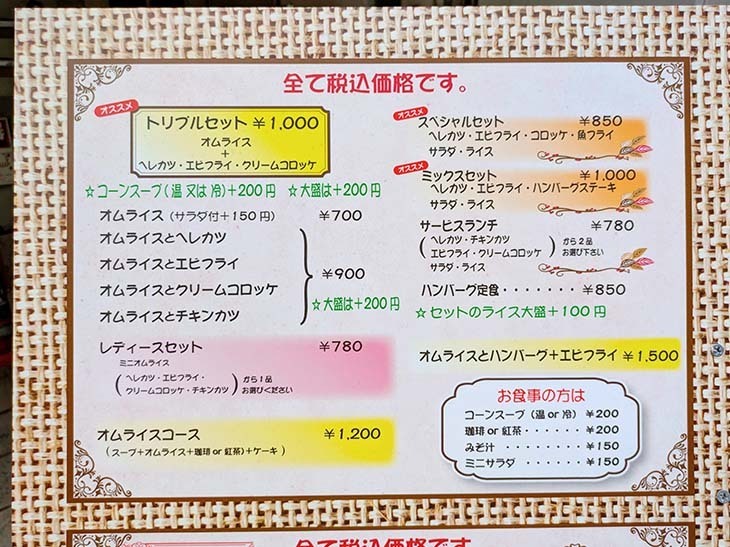 全て税込価格です。
オススメ
トリプルセット ¥1,000
オムライス
+
ヘレカツ・エビフライ・クリームコロッケ
☆コーンスープ(温 又は 冷)+200円 ☆大盛は+200円
オムライス(サラダ付+150円) ¥700
オムライスとヘレカツ
オムライスとエビフライ
オムライスとクリームコロッケ
オムライスとチキンカツ
¥900
☆大盛は+200円
レディースセット ¥780
ミニオムライス
(ヘレカツ・エビフライ・
クリームコロッケ・チキンカツ)
から1品
お選びください
オムライスコース ¥1,200
(スープ+オムライス+珈琲or紅茶)+ケーキ)
オススメ
スペシャルセット ¥850
ヘレカツ・エビフライ・コロッケ・魚フライ
サラダ・ライス
オススメ
ミックスセット ¥1,000
ヘレカツ・エビフライ・ハンバーグステーキ
サラダ・ライス
サービスランチ ¥780
(ヘレカツ・チキンカツ
エビフライ・クリームコロッケ)
から2品
お選び下さい
サラダ・ライス
ハンバーグ定食・・・・・・・¥850
☆セットのライス大盛+100円
オムライスとハンバーグ+エビフライ ¥1,500
お食事の方は
コーンスープ(温or冷) ¥200
珈琲or紅茶・・・・・¥200
みそ汁・・・・・・・¥150
ミニサラダ・・・・・¥150
全て税込価格です。